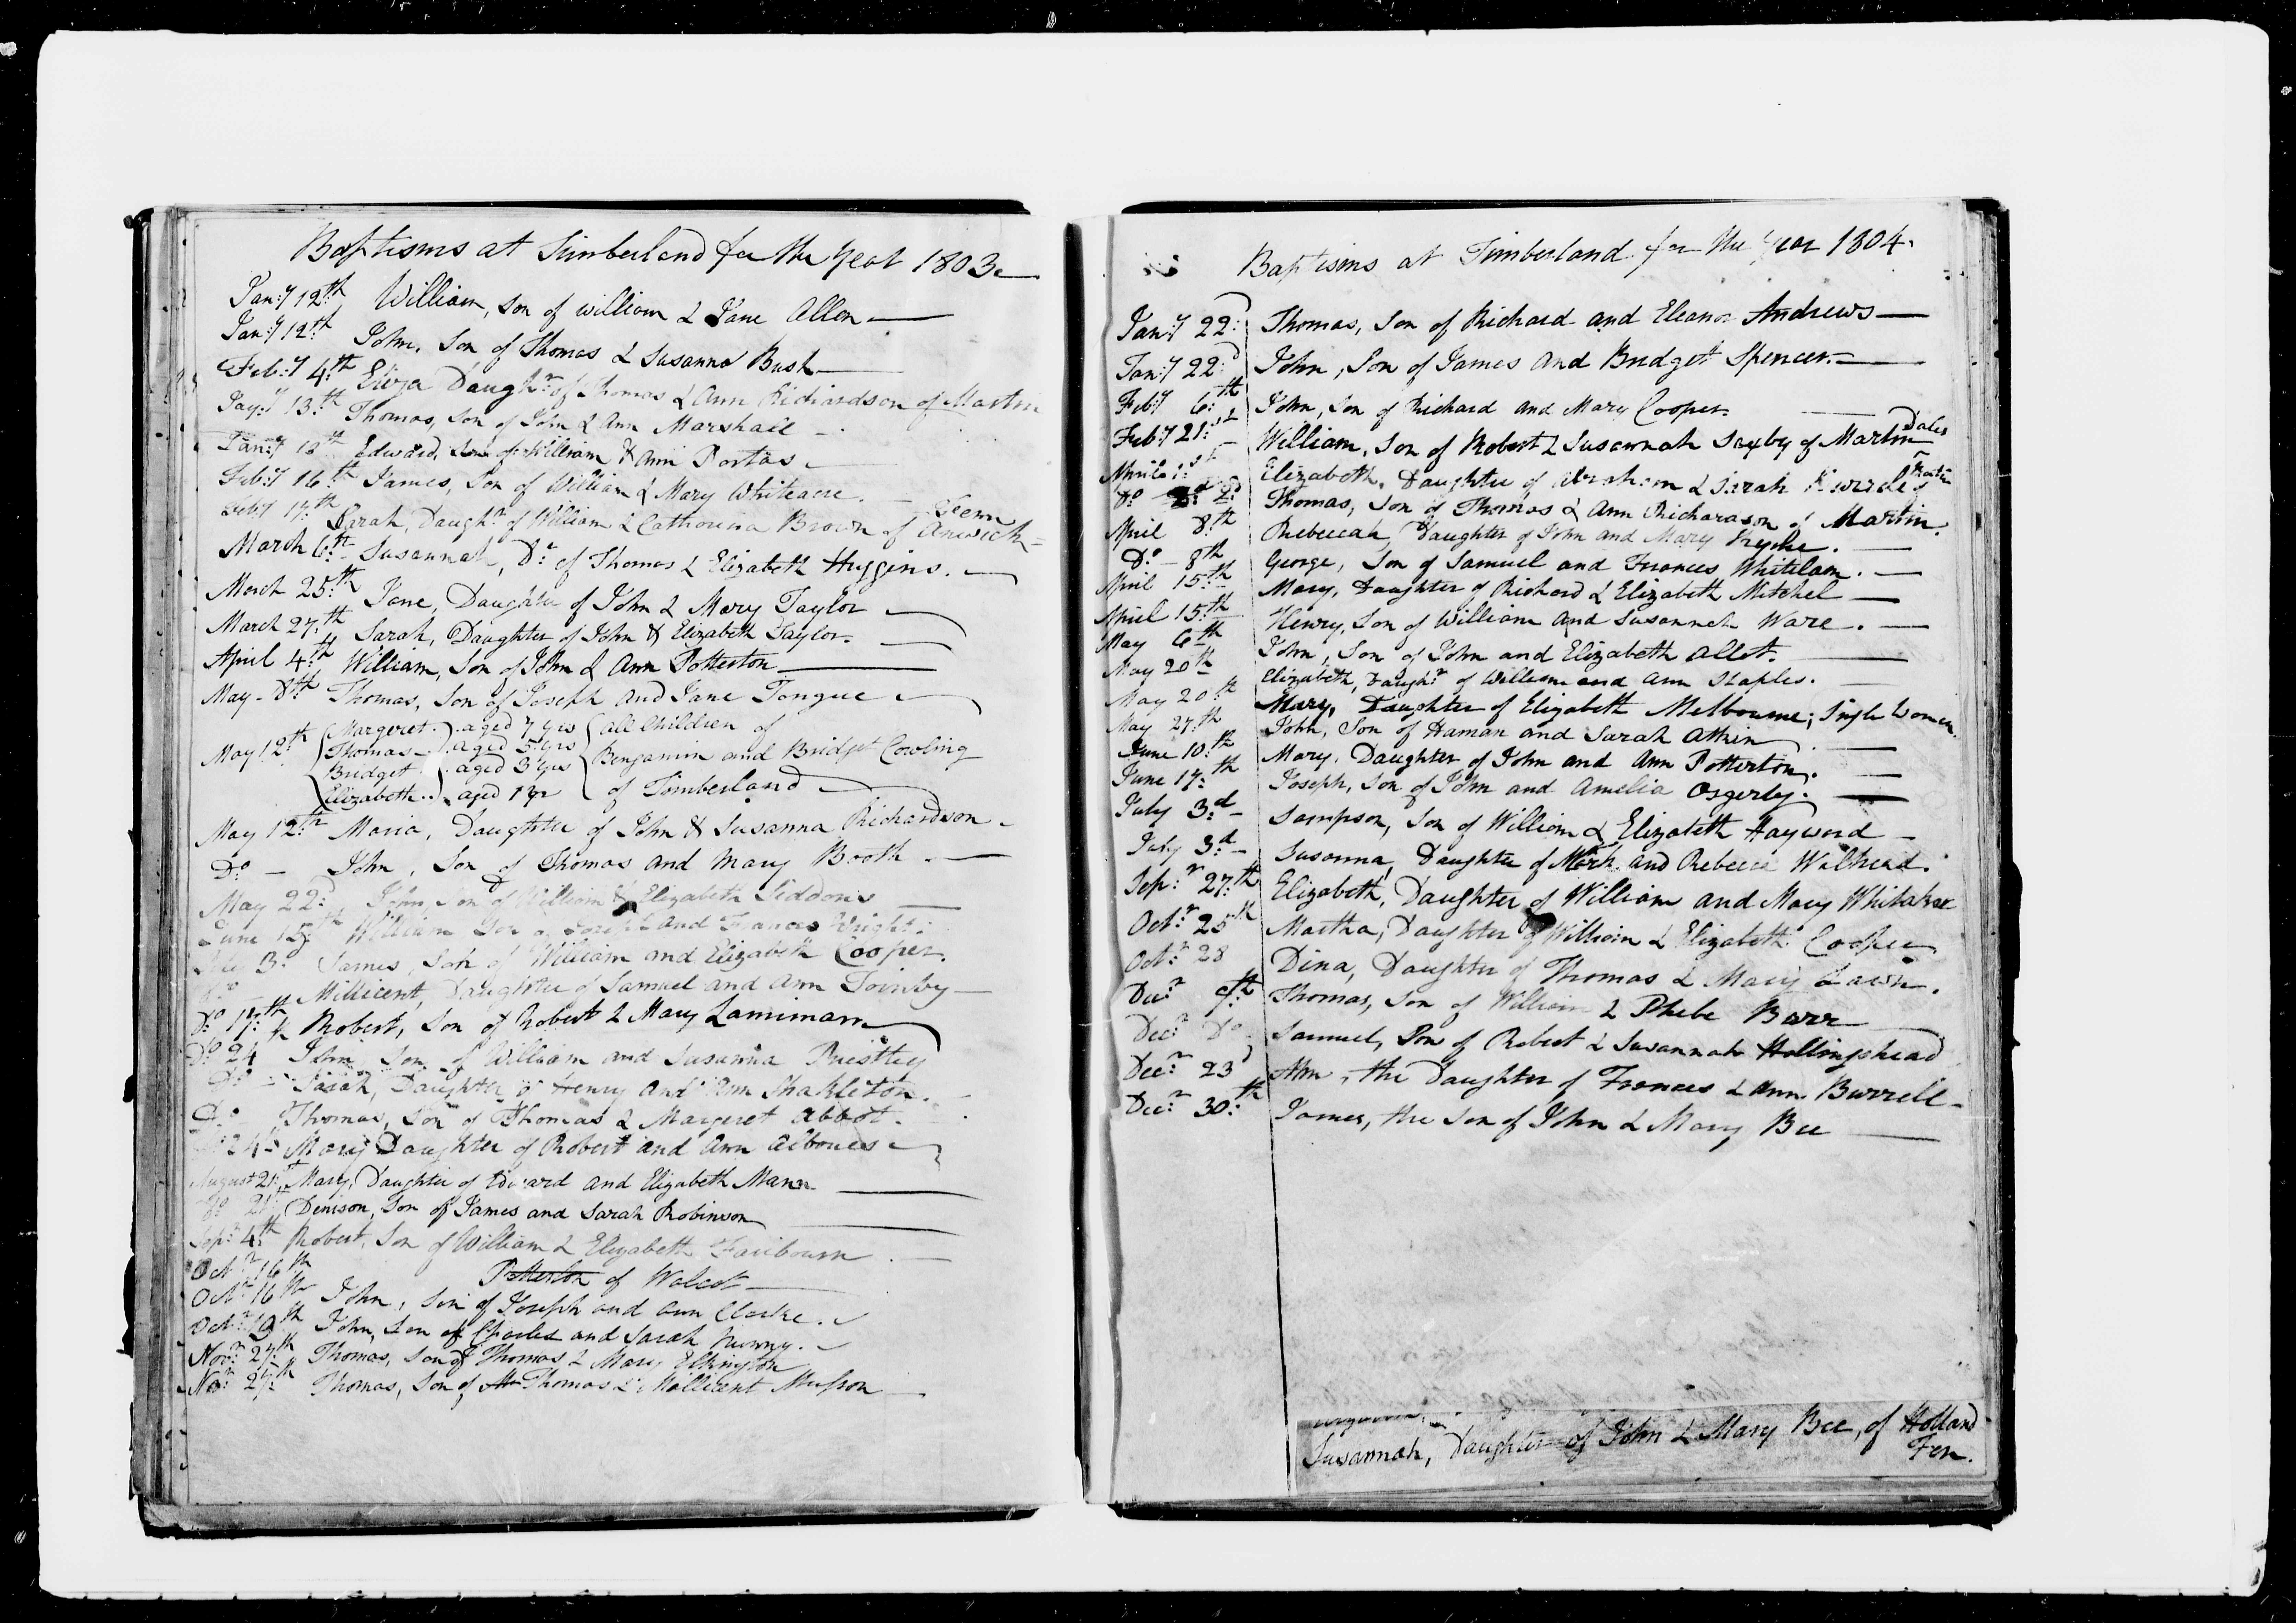 Baptisms at Timberland for the Year 1803
Jan:y 12th William, Son of William & Jane Allen
Jan:y 12th John, Son of Thomas & Susanna Bush
Feb:y 4th Eliza Daught:r of Thomas & Ann Richardson of Martin
13th Thomas, Son of John & Ann Marshall
Jan:y Edward, Son of William & Ann Portas
Feb:y 16th James, Son of William & Mary Whiteacre.
Feb:y 17th Sarah, Daught:r of William & Catherina Brown of Anwick Fenn
March 6th Susannah, D:r of Thomas & Elizabeth Huggins.
March 25th Jane, Daughter of John & Mary Taylor
March 27th Sarah, Daughter of John & Elizabeth Taylor.
April 4th William, Son of John & Ann Potterton
May 8th Thomas, Son of Joseph and Jane Tongue
May 12th Margeret aged 7 yrs all Children of
Thomas aged 5 yrs
Bridget aged 3 yrs Benjamin and Bridget Cowling
Elizabeth aged 1 yr of Timberland
May 12th Maria, Daughter of John & Susanna Richardson
Do John, Son of Thomas and Mary Booth
May 22d John, Son of William & Elizabeth Siddons
June 15th William Son of Joseph and Frances Wright
3d James, Son of William and Elizabeth Cooper.
Do Millicent, Daughter of Samuel and Ann Toinby
Do 17th Robert, Son of Robert & Mary Lamiman
Do 24 John, Son of William and Susanna Priestley
Do Sarah, Daughter of Henry and Ann Shakleton.
Do Thomas, Son of Thomas & Margeret Abbot.
24 Mary Daughter of Robert and Ann
August 21st Mary, Daughter of Edward and Elizabeth Mann
Do 21st Denison, Son of James and Sarah Robinson
Sep:r 4th Robert, Son of William & Elizabeth Fairbourn
Oct:r 16th
Potterton of Walcot
Oct:r 16th John, Son of Joseph and Ann Clarke.
Oct:r 19th John, Son of Charles and Sarah
Nov:r 27th Thomas, Son of Thomas & Mary Elkington
Nov:r 27th Thomas, Son of Thomas & Millicent Musson
Baptisms at Timberland for the Year 1804.
Jan:y 22d Thomas, Son of Richard and Eleanor Andrews
Jan:y 22d John, Son of James and Bridget Spencer.
Feb:y 6th John, Son of Richard and Mary Cooper.
Feb:y 21st William, Son of Robert & Susannah Saxby of Martin Dales
April 1st Elizabeth, Daughter of Abraham & Sarah
Do 2d Thomas, Son of Thomas & Ann Richardson of Martin.
April 8th Rebeccah, Daughter of John and Mary
Do 8th George, Son of Samuel and Frances Whitelam.
April 15th Mary, Daughter of Richard & Elizabeth Mitchel
April 15th Henry, Son of William and Susannah Ware.
May 6th John, Son of John and Elizabeth Allet.
May 20th Elizabeth, Daught:r of William and Ann Staples.
May 20th Mary, Daughter of Elizabeth Melbourne; Single Woman.
May 27th John, Son of Haman and Sarah Atkin
June 10th Mary, Daughter of John and Ann Potterton.
June 17th Joseph, Son of John and Amelia Osgerby.
July 3d Sampson, Son of William & Elizabeth Hayward
July 3d Susanna, Daughter of Mark and Rebecca Walhead.
Sep:r 27th Elizabeth, Daughter of William and Mary Whitakre
Oct:r 25th Martha, Daughter of William & Elizabeth Cooper
Oct:r 28 Dina, Daughter of Thomas & Mary Lawn.
Dec:r 9th Thomas, Son of William & Phebe Barr
Dec:r Do Samuel, Son of Robert & Susannah Hollingshead
Dec:r 23d Ann, the Daughter of Frances & Ann Burrell
Dec:r 30th James, the Son of John & Mary Bee
Susannah, Daughter of John & Mary Bee, of Holland
Fen.